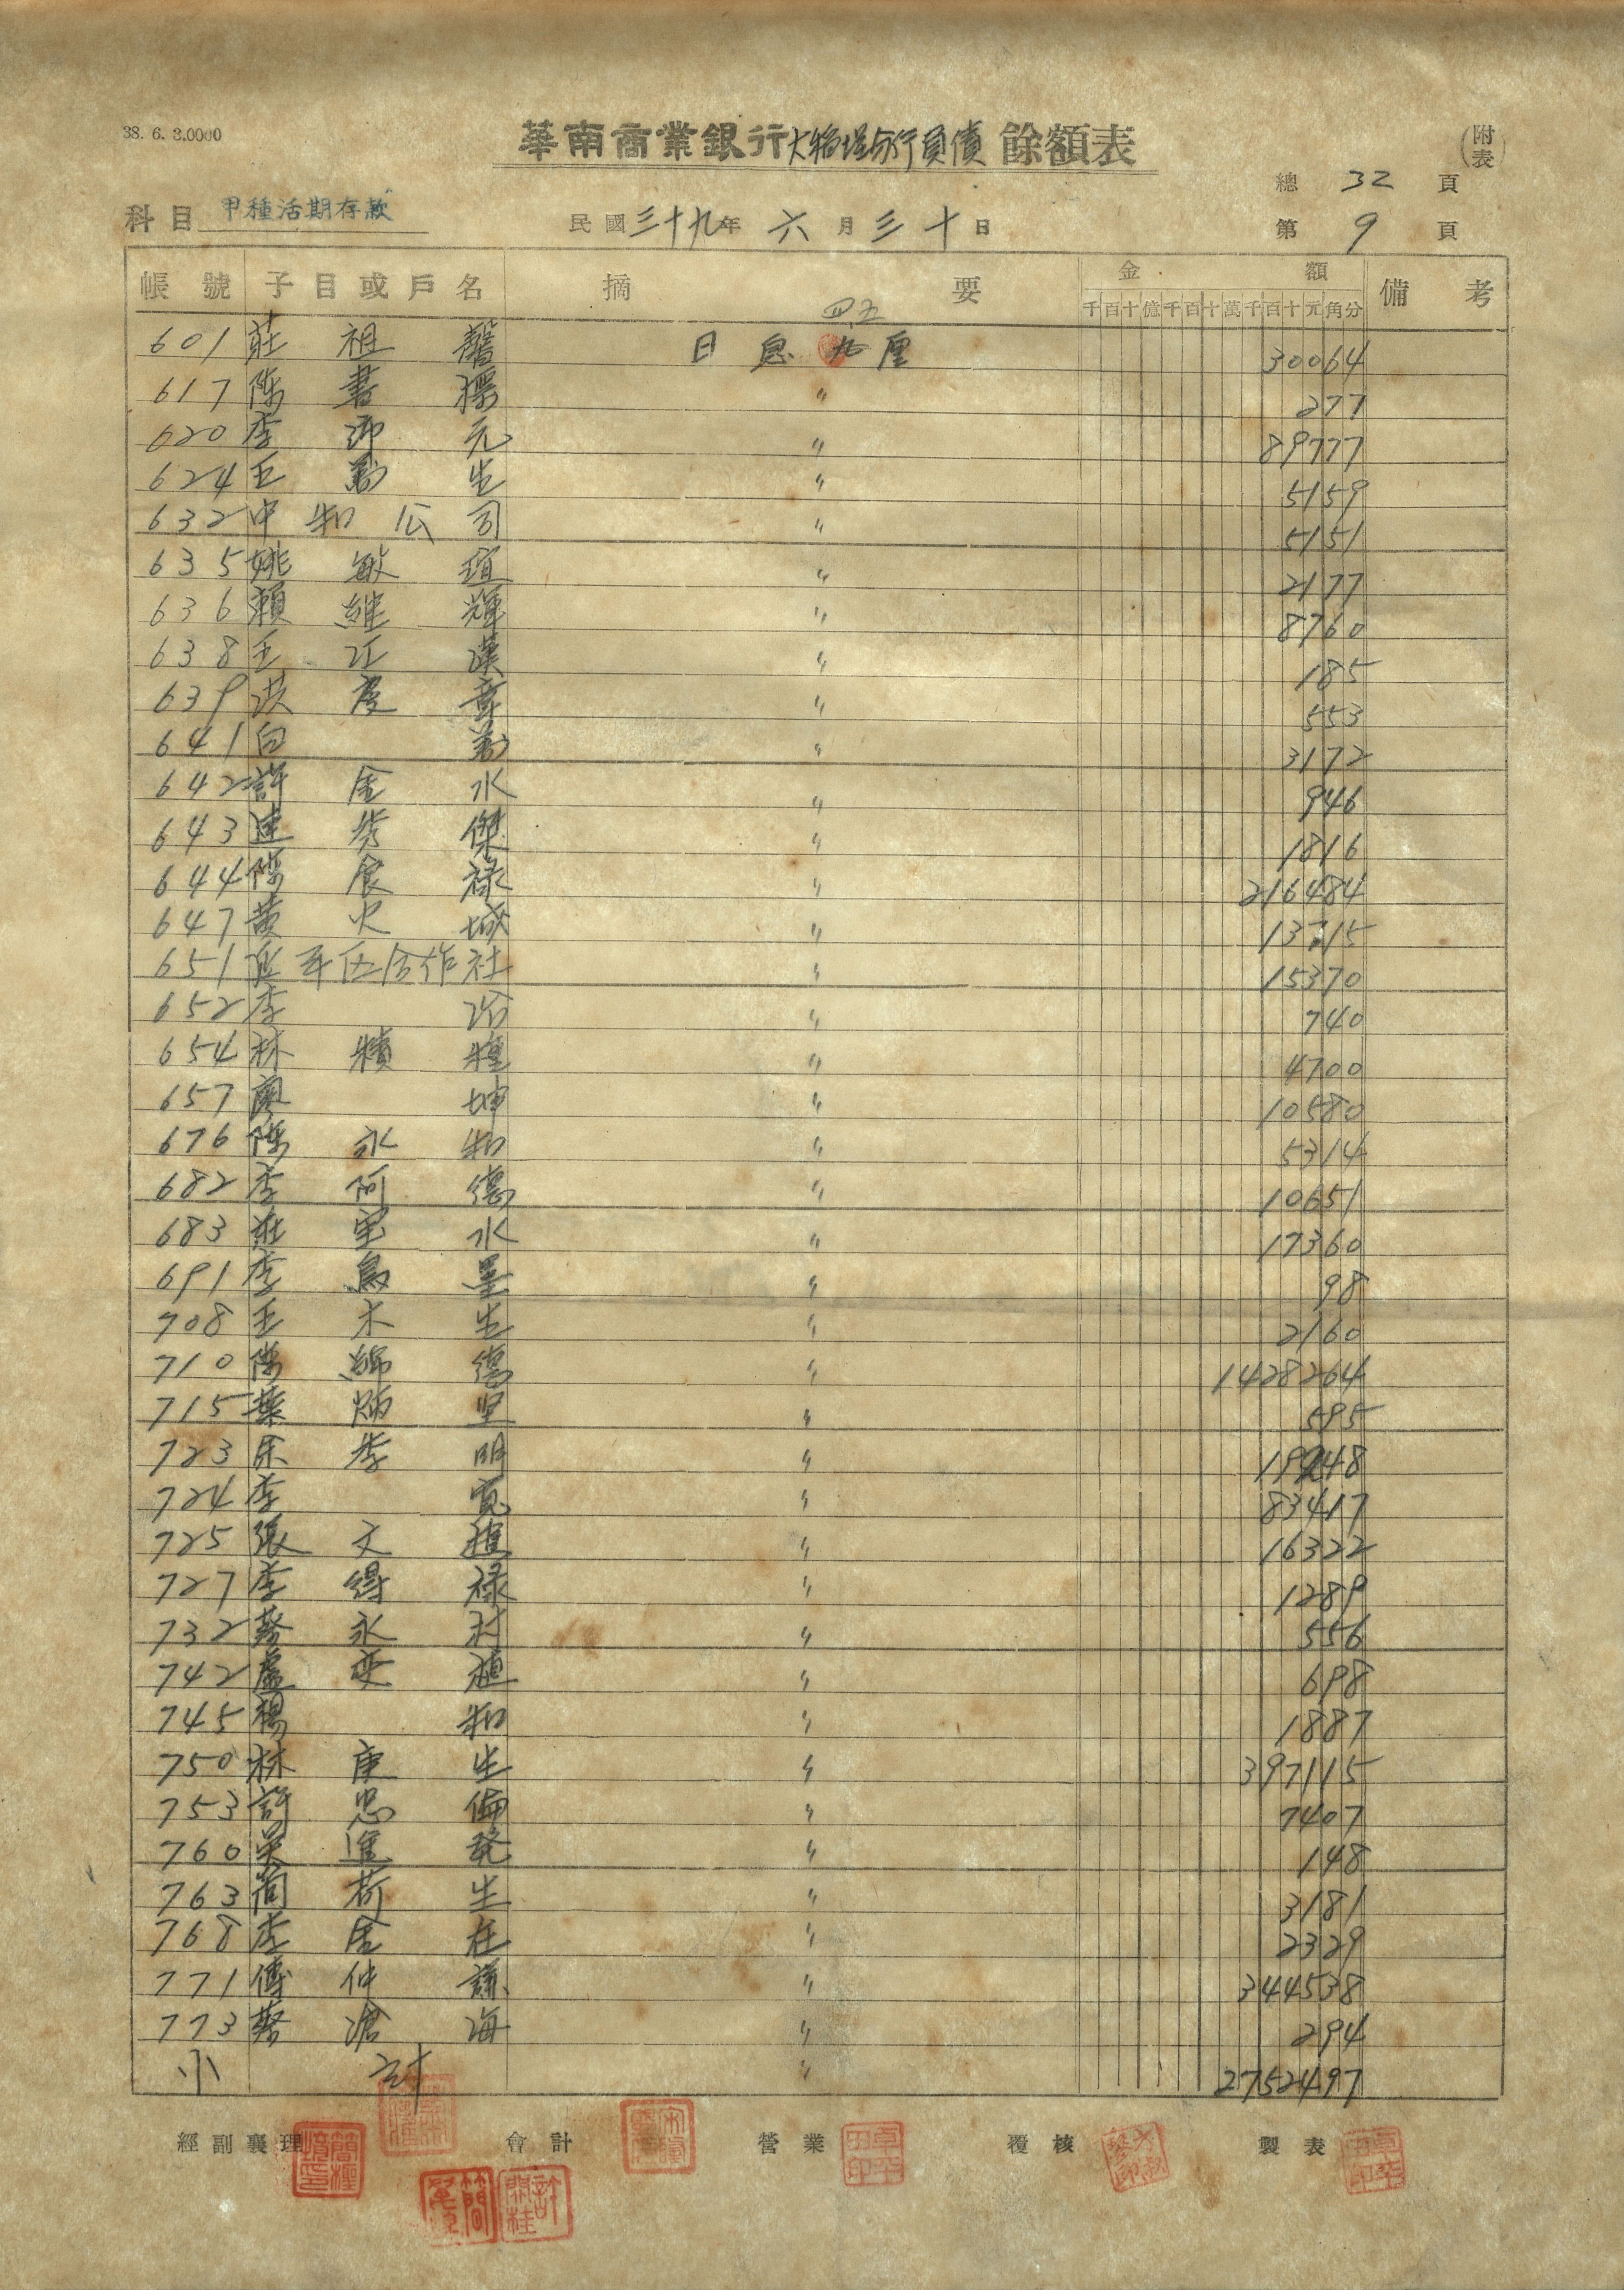 38. 6. 3.0000
華南商業銀行大稻埕分行負債 餘額表
(附表)
總 32 頁
科目 甲種活期存款
民國三十九年 六月三十日
第 9 頁
帳號 子目或戶名 摘要 金額 備考
千百十億千百十萬千百十元角分
四五
601 莊祖 日息 九厘 30064
617 陳書 〃 277
620 李元 〃 89777
624 王萬生 〃 5159
632 中和公司 〃 5151
635 姚敏 〃 2177
636 賴維輝 〃 8760
638 王江漢 〃 185
639 洪度章 〃 553
641 白 〃 3172
642 許金水 〃 946
643 連傑 〃 1816
644 陳食祿 〃 216484
647 黃火城 〃 13715
651 延平區合作社 〃 15370
652 李 〃 740
654 林 〃 4700
657 廖坤 〃 10580
676 陳永和 〃 5314
682 李阿德 〃 10651
683 莊水 〃 17360
691 李烏墨 〃 98
708 王木生 〃 2160
710 陳錦德 〃 1428264
715 葉炳坚 〃 595
723 余明 〃 19948
724 李寬 〃 83417
725 張文 〃 16322
727 李得祿 〃 1289
732 蔡永利 〃 556
742 盧 〃 698
745 楊和 〃 1887
750 林庚生 〃 397115
753 許忠倫 〃 7407
760 吳進發 〃 148
763 簡荷生 〃 3181
768 李金在 〃 2329
771 傅仲謙 〃 344538
773 蔡滄海 〃 294
小計 〃 2752497
經副襄理 會計 營業 覆核 製表